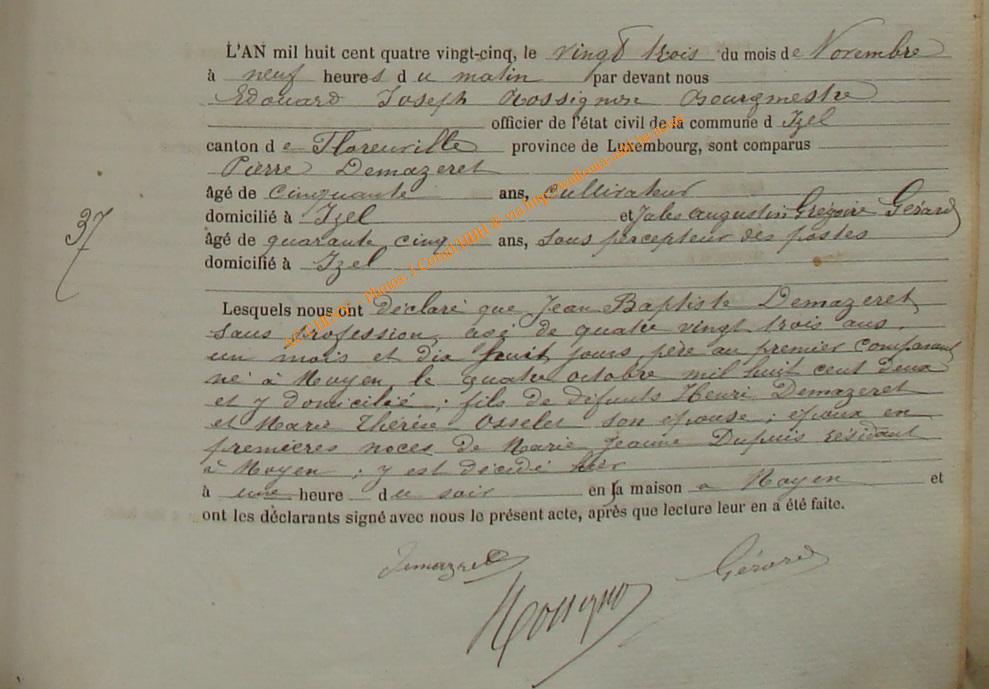 L'AN mil huit cent quatre vingt-cinq, le vingt trois du mois de Novembre
à neuf heures du matin par devant nous
Edouard Joseph Rossignon Bourgmestre
officier de l'état civil de la commune d Izel
canton de Florenville province de Luxembourg, sont comparus
Pierre Demazeret
âgé de cinquante ans, cultivateur
domicilié à Izel et Jules Augustin Grégoire Gérard
âgé de quarante cinq ans, sous percepteur des postes
domicilié à Izel
37
Lesquels nous ont déclaré que Jean Baptiste Demazeret
sans profession, agé de quatre vingt trois ans,
un mois et dix huit jours, père au premier comparant
né à Moyen, le quatre octobre mil huit cent deux
et y domicilié ; fils de défunts Henri Demazeret
et Marie Thérèse Osselet son épouse ; époux en
premières noces de Marie Jeanne Dupuis résidant
à Moyen ; y est décédé hier
à une heure du soir en la maison à Moyen et
ont les déclarants signé avec nous le présent acte, après que lecture leur en a été faite.
Demazeret
Gérard
Rossignon